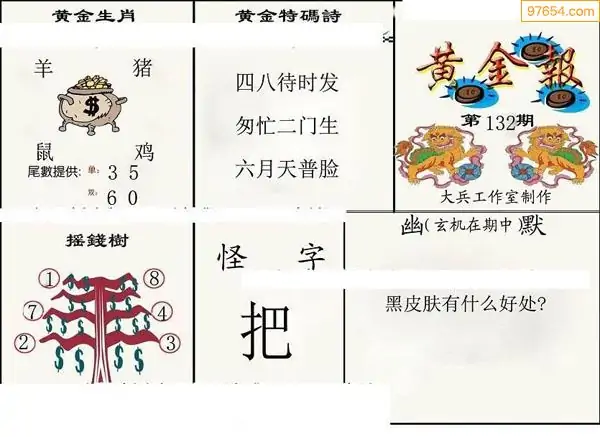 97654.com
黄金生肖
羊 猪
$
鼠 鸡
尾數提供: 单: 3 5
双: 6 0
黄金特碼詩
四八待时发
匆忙二门生
六月天普脸
黄金報
第132期
大兵工作室制作
摇錢樹
① ⑧
⑦ ④
② ③
怪 字
把
幽(玄机在期中)默
黑皮肤有什么好处?